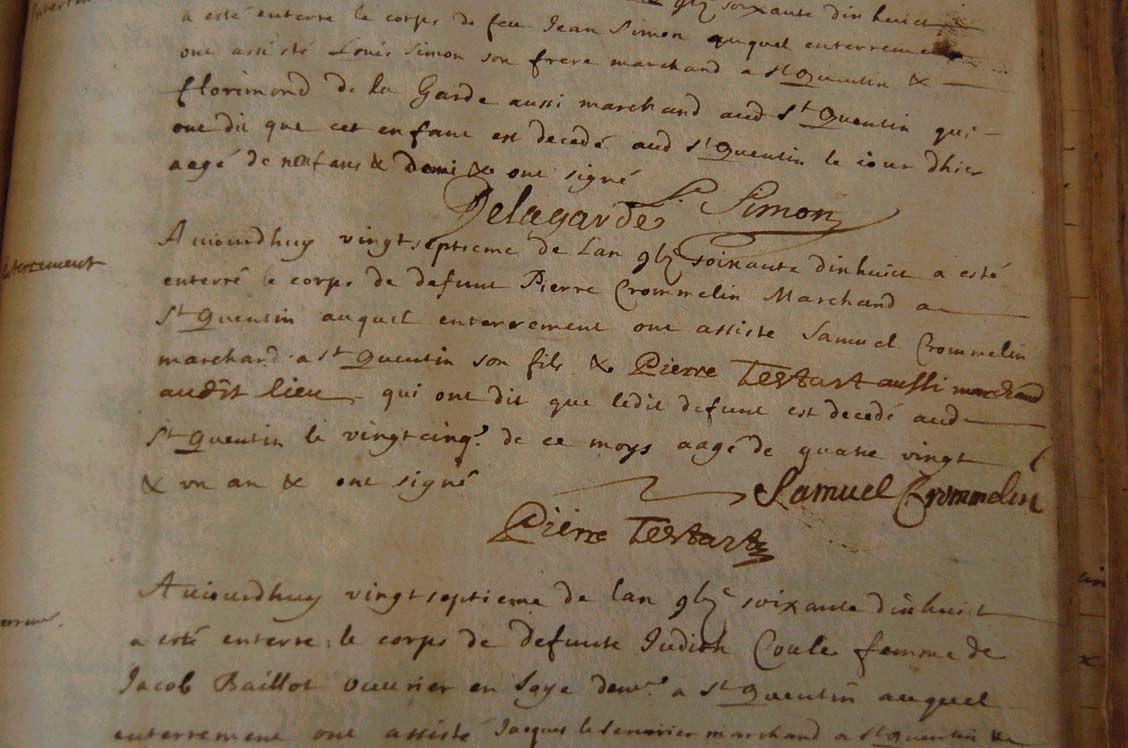 soixante dinhuict
a esté enterre le corps de feu Jean Simon auquel enterrement
ont assisté Louis Simon son frere marchand a St Quentin &
florimond de la Garde aussi marchand aud St Quentin qui
ont dit que cet enfant est decedé aud St Quentin le iour dhier
aagé de neuf ans & demi & ont signé
Delagarde L Simon
Auiourdhuy vingt septieme de Lan soixante dinhuict a esté
enterrement
enterré le corps de defunt Pierre Crommelin Marchand a
St Quentin auquel enterrement ont assiste Samuel Crommelin
marchand a St Quentin son fils & Pierre Testart aussi marchand
audit lieu qui ont dit que ledit defunt est decedé aud
St Quentin le vingtcinq.e de ce moys aagé de quatre vingt
& vn an & ont signé
Samuel Crommelin
Pierre Testart
Auiourdhuy vingtseptieme de lan soixante dinhuict
a esté enterre le corps de defunte Judith Coule femme de
Jacob Baillot ouurier en soye dem.t a St Quentin auquel
enterrement ont assisté Jacques marchand a St Quentin &